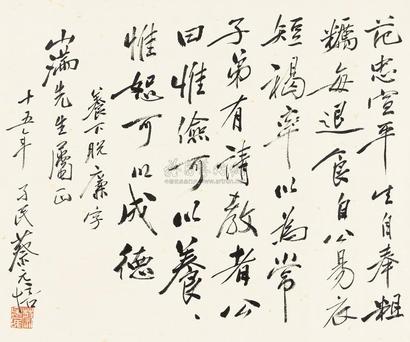 范忠宣平生自奉粗
糲每退食自公易衣
短褐率以為常
子弟有請教者公
曰惟儉可以養、
惟恕可以成德
養下脫廉字
小滿先生屬正
十五年 孑民蔡元培